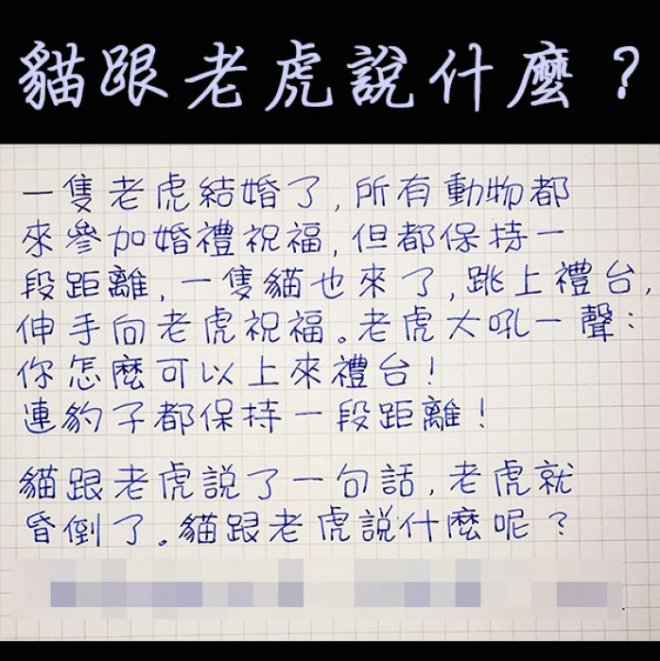 貓跟老虎說什麼？
一隻老虎結婚了,所有動物都
來參加婚禮祝福,但都保持一
段距離,一隻貓也來了,跳上禮台,
伸手向老虎祝福。老虎大吼一聲:
你怎麼可以上來禮台!
連豹子都保持一段距離!
貓跟老虎說了一句話,老虎就
昏倒了。貓跟老虎說什麼呢?